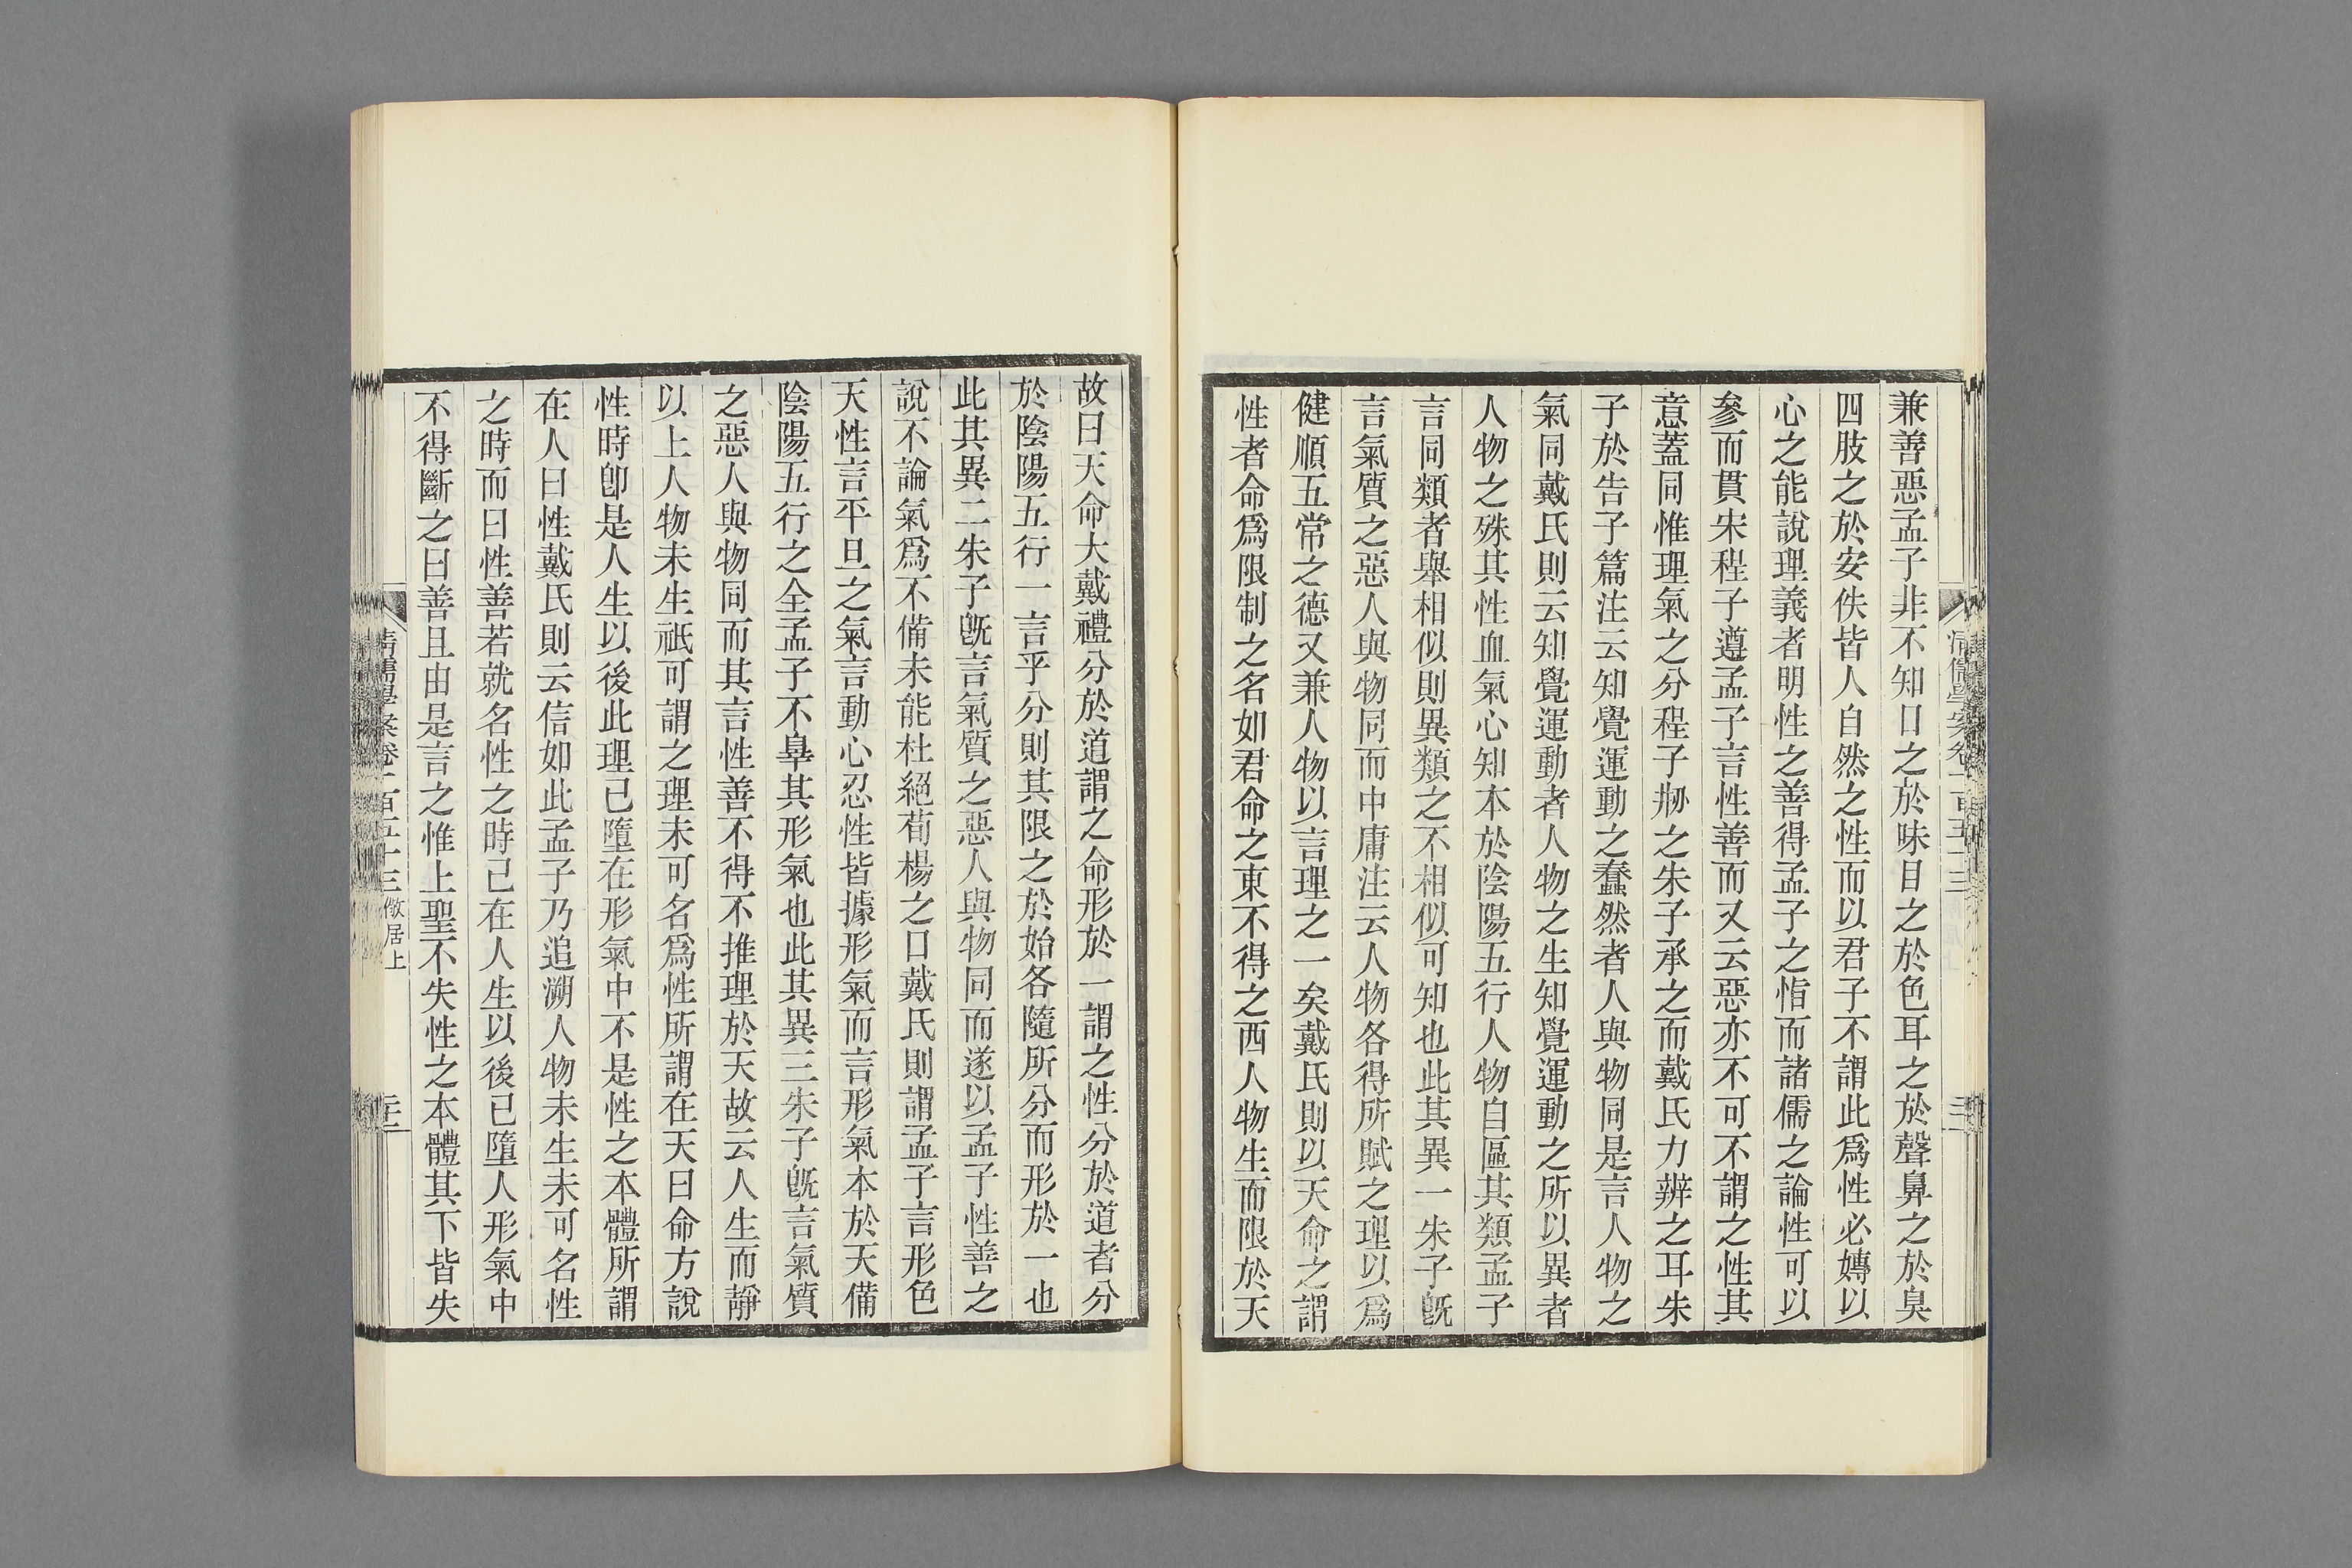 兼善惡孟子非不知口之於味目之於色耳之於聲鼻之於臭
四肢之於安佚皆人自然之性而以君子不謂此爲性必嫥以
心之能說理義者明性之善得孟子之恉而諸儒之論性可以
參而貫宋程子遵孟子言性善而又云惡亦不可不謂之性其
意蓋同惟理氣之分程子刱之朱子承之而戴氏力辨之耳朱
子於告子篇注云知覺運動之蠢然者人與物同是言人物之
氣同戴氏則云知覺運動者人物之生知覺運動之所以異者
人物之殊其性血氣心知本於陰陽五行人物自區其類孟子
言同類者舉相似則異類之不相似可知也此其異一朱子旣
言氣質之惡人與物同而中庸注云人物各得所賦之理以爲
健順五常之德又兼人物以言理之一矣戴氏則以天命之謂
性者命爲限制之名如君命之東不得之西人物生而限於天
故曰天命大戴禮分於道謂之命形於一謂之性分於道者分
於陰陽五行一言乎分則其限之於始各隨所分而形於一也
此其異二朱子旣言氣質之惡人與物同而遂以孟子性善之
說不論氣爲不備未能杜絕荀楊之口戴氏則謂孟子言形色
天性言平旦之氣言動心忍性皆據形氣而言形氣本於天備
陰陽五行之全孟子不辠其形氣也此其異三朱子旣言氣質
之惡人與物同而其言性善不得不推理於天故云人生而靜
以上人物未生祇可謂之理未可名爲性所謂在天曰命方說
性時卽是人生以後此理已墮在形氣中不是性之本體所謂
在人曰性戴氏則云信如此孟子乃追溯人物未生未可名性
之時而曰性善若就名性之時已在人生以後已墮人形氣中
不得斷之曰善且由是言之惟上聖不失性之本體其下皆失
清儒學案卷一百五十三儆居上